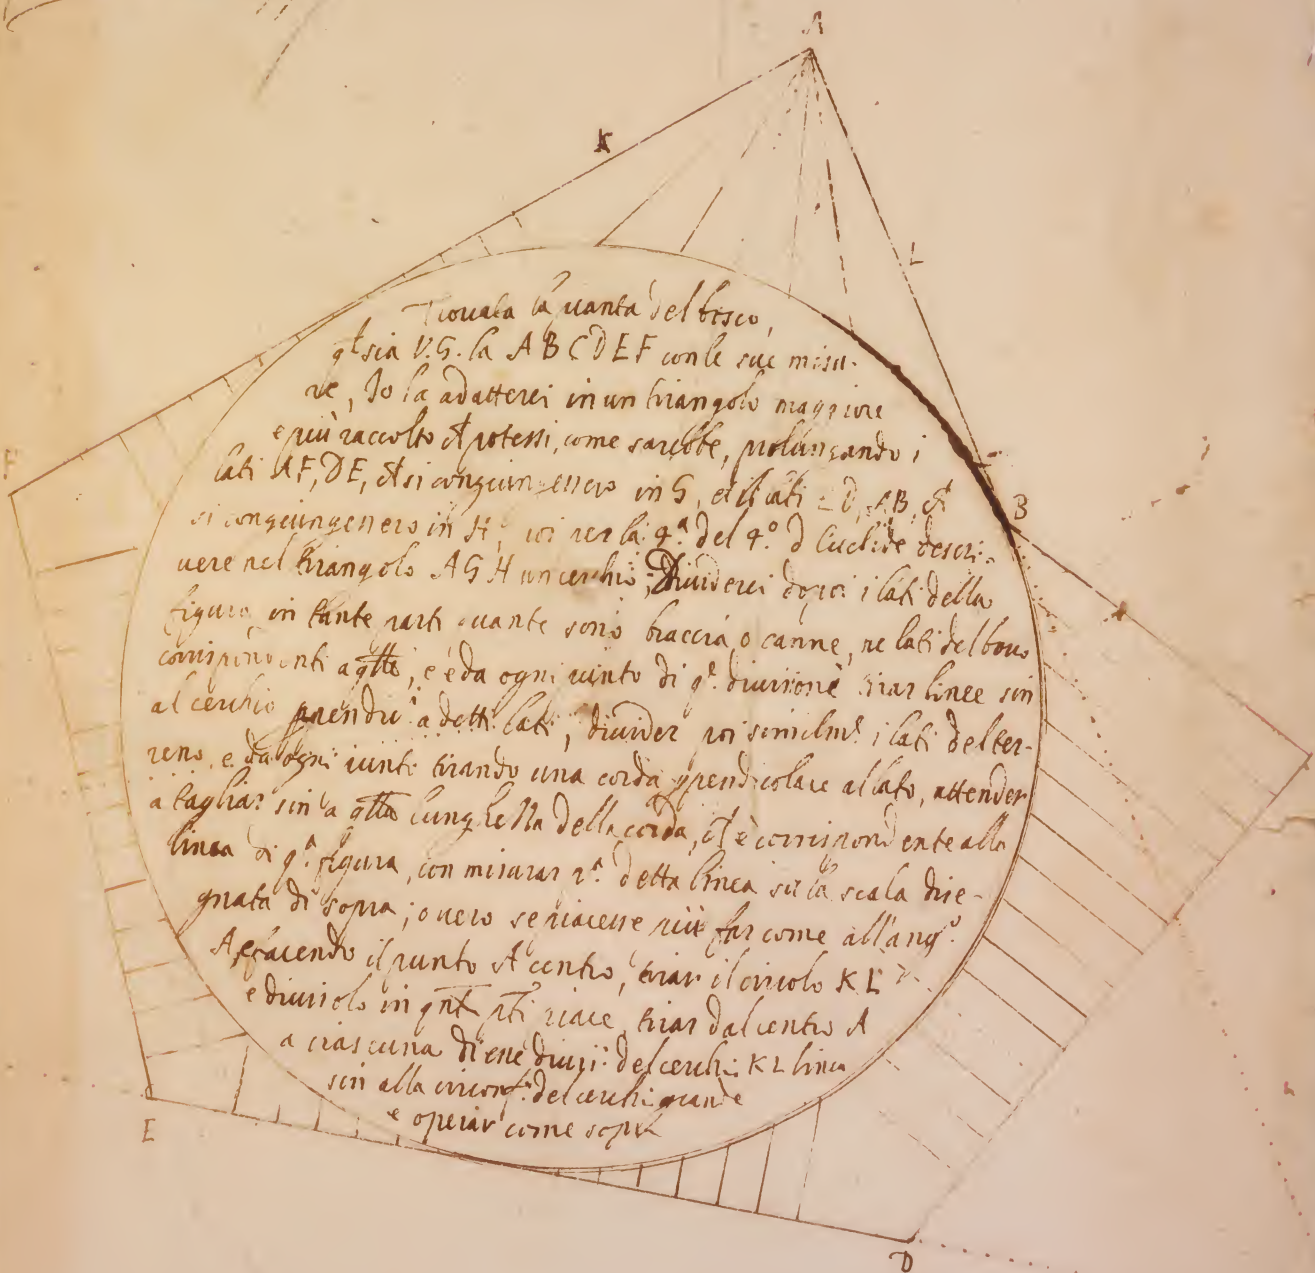 A
K
L
Trovata la quantà del bosco,
q̃l sia V.G. la A B C D E F con le sue misu-
re, Io la adatterei in un triangolo maggiore
e più raccolto potessi, come sarebbe, prolungando i
lati AF, DE, si congiungessero in G, et li lati D, AB,
si congiungessero in H, poi per la 4.ª del 4.º d Euclide descri-
vere nel triangolo A G H un cerchio; Dividerei dopoi i lati della
figura, in tante parti quante sono braccia, o canne, ne lati del bosco
corrispondenti a, e da ogni punto di q.ª divisione tirar linee sin
al cerchio a detti lati, divider poi similm.e i lati del ter-
reno, e da ogni punto tirando una corda ppendicolare al lato, attender
a tagliar sin a lunghezza della corda, è corrispondente alla
linea di q.ª figura, con misurar detta linea su la scala dise-
gnata di sopra; overo se piacesse più far come all'ang.º
A facendo il punto A centro, tirar il circolo K L
e divisolo in piace, tirar dal centro A
a ciascuna di esse divis: del cerchi: K L linea
sin alla circonf.ª del cerchi: grande
e operar come sopra
F
B
E
D